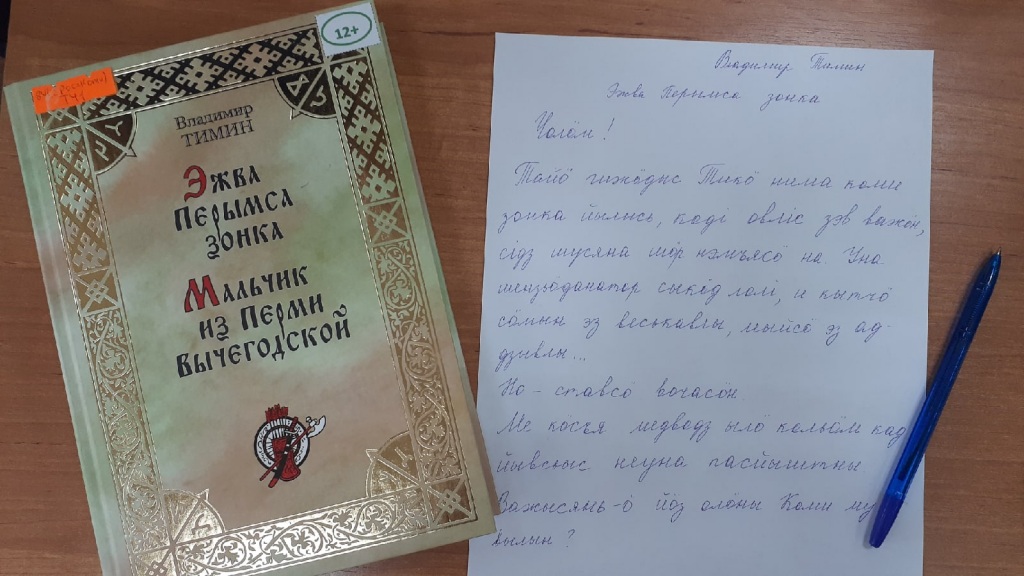 12+
Владимир
ТИМИН
Эжва
Перымса
зонка
Мальчик
из Перми
Вычегодской
Владимир Тимин
Эжва Перымса зонка
Чолӧм!
Тайӧ гижӧдыс Тикӧ нима коми
зонка йылысь, коді овліс зэв важӧн,
сідз шусяна шӧр нэмъясӧ на. Уна
шензьӧданатор сыкӧд лолі, и кытчӧ
сӧмын эз веськавлы, мыйсӧ эз ад-
дзивлы...
Но - ставсӧ вочасӧн.
Ме кӧсъя медводз ылӧ кольӧм кад
йывсьыс неуна тасйыштны
Важысянь-ӧ йӧз олӧны Коми му
вылын?